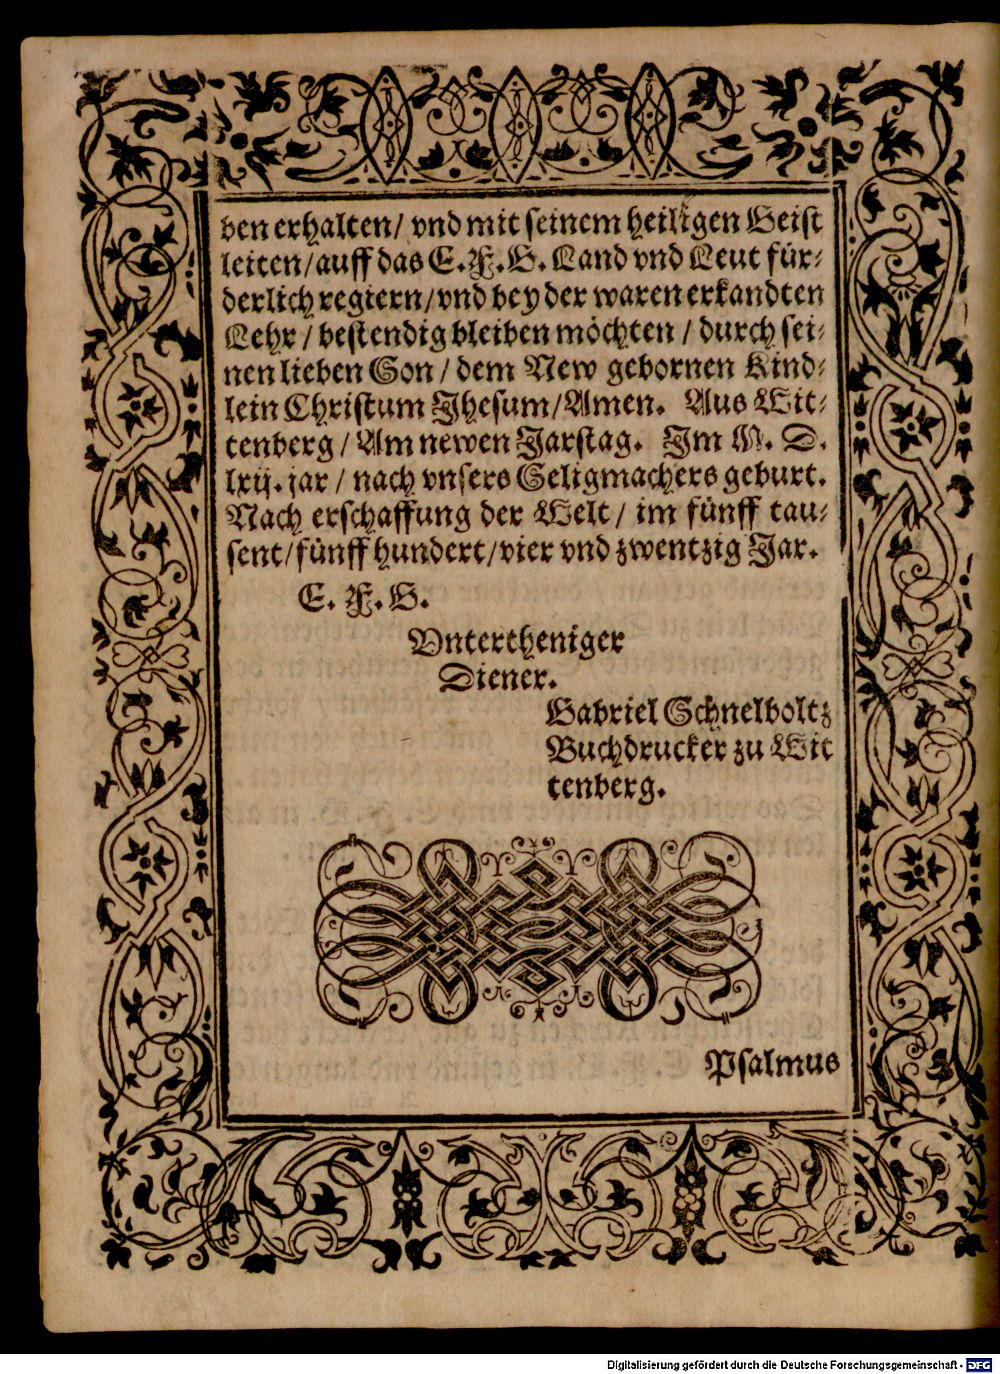 ben erhalten/ vnd mit seinem heiligen Geist
leiten/auff das E.F.G. Land vnd Leut für-
derlich regiern/vnd bey der waren erkandten
Lehr/ bestendig bleiben möchten / durch sei-
nen lieben Son/ dem New gebornen Kind-
lein Christum Jhesum/Amen. Aus Wit-
tenberg / Am newen Jarstag. Im M. D.
lxij. jar / nach vnsers Seligmachers geburt.
Nach erschaffung der Welt/ im fünff tau-
sent/fünff hundert/vier vnd zwentzig Jar.
E. F. G.
Vntertheniger
Diener.
Gabriel Schnelboltz
Buchdrucker zu Wit
tenberg.
Psalmus
Digitalisierung gefördert durch die Deutsche Forschungsgemeinschaft - DFG